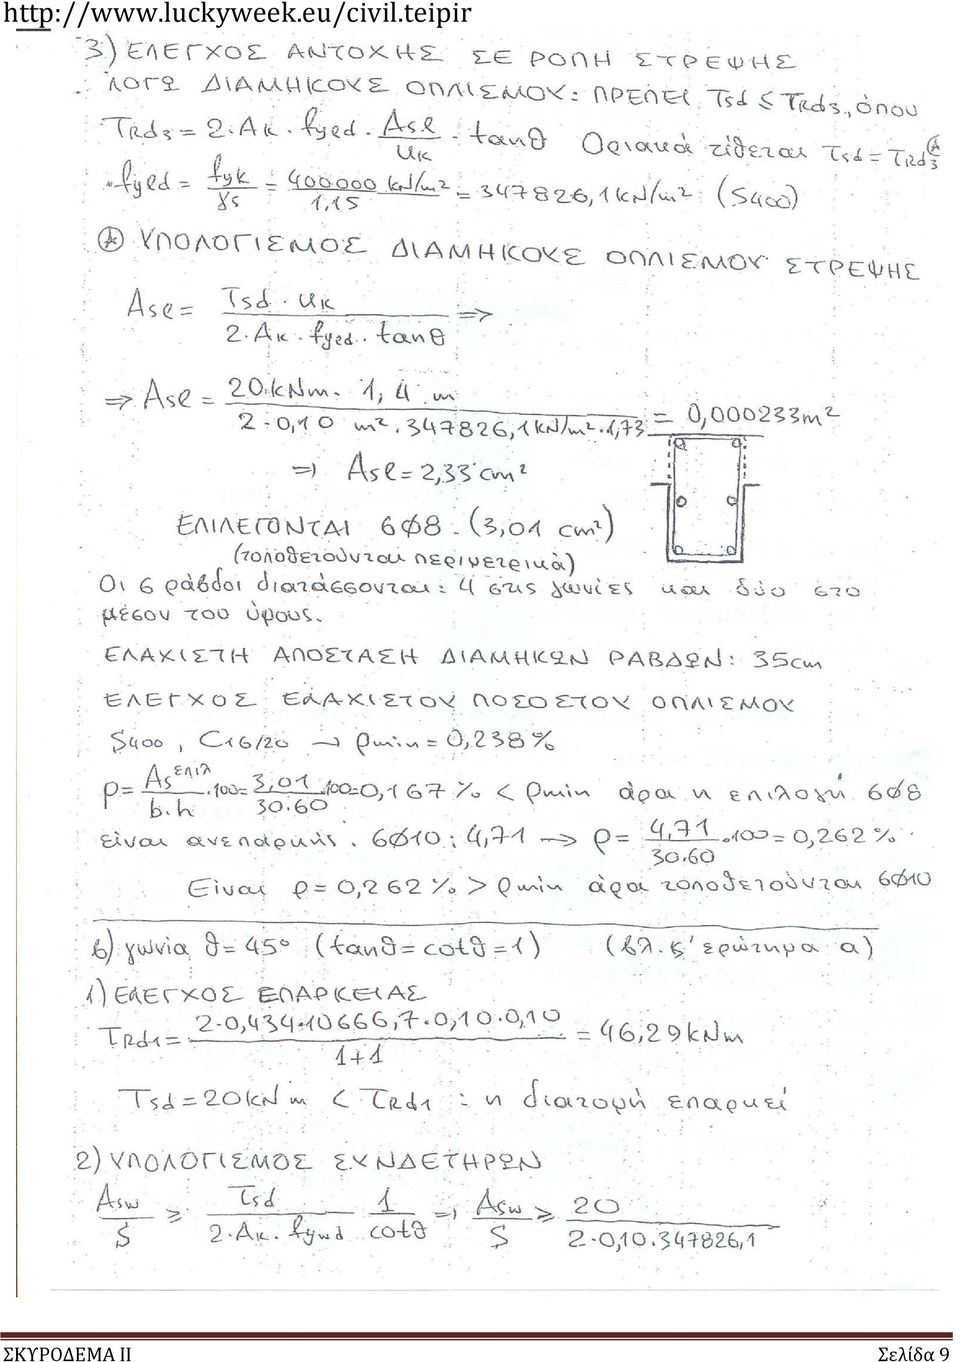 http://www.luckyweek.eu/civil.teipir
3) ΕΛΕΓΧΟΣ ΑΝΤΟΧΗΣ ΣΕ ΡΟΠΗ ΣΤΡΕΨΗΣ
ΛΟΓΩ ΔΙΑΜΗΚΟΥΣ ΟΠΛΙΣΜΟΥ: ΠΡΕΠΕΙ Tsd ≤ TRd3, όπου
TRd3 = 2·Ak·fyld·Asl/uk·tanθ Οριακά τίθεται Tsd = TRd3 (*)
·fyld = fyk/γs = 400.000 kN/m²/1,15 = 347826,1 kN/m² (S400)
(*) ΥΠΟΛΟΓΙΣΜΟΣ ΔΙΑΜΗΚΟΥΣ ΟΠΛΙΣΜΟΥ ΣΤΡΕΨΗΣ
Asl = Tsd·uk/2·Ak·fyld·tanθ =>
=> Asl = 20kNm·1,4 m/2·0,10 m²·347826,1 kN/m²·1,73 = 0,000233m²
=> Asl = 2,33 cm²
ΕΠΙΛΕΓΟΝΤΑΙ 6Ø8 (3,01 cm²)
(τοποθετούνται περιμετρικά)
Οι 6 ράβδοι διατάσσονται: 4 στις γωνίες και δύο στο
μέσον του ύψους.
ΕΛΑΧΙΣΤΗ ΑΠΟΣΤΑΣΗ ΔΙΑΜΗΚΩΝ ΡΑΒΔΩΝ: 35cm
ΕΛΕΓΧΟΣ ΕΛΑΧΙΣΤΟΥ ΠΟΣΟΣΤΟΥ ΟΠΛΙΣΜΟΥ
S400, C16/20 → ρmin = 0,238%
ρ = As επιλ/b·h·100 = 3,01/30·60·100 = 0,167% < ρmin άρα η επιλογή 6Ø8
είναι ανεπαρκής. 6Ø10: 4,71 → ρ = 4,71/30·60·100 = 0,262%
Είναι ρ = 0,262% > ρmin άρα τοποθετούνται 6Ø10
β) γωνία θ = 45° (tanθ = cotθ = 1) (βλ. κ' ερώτημα α)
1) ΕΛΕΓΧΟΣ ΕΠΑΡΚΕΙΑΣ
TRd1 = 2·0,434·10666,7·0,10·0,10/1+1 = 46,29kNm
Tsd = 20kNm < TRd1 : η διατομή επαρκεί
2) ΥΠΟΛΟΓΙΣΜΟΣ ΣΥΝΔΕΤΗΡΩΝ
Asw/S ≥ Tsd/2·Ak·fywd 1/cotθ => Asw/S ≥ 20/2·0,10·347826,1
ΣΚΥΡΟΔΕΜΑ ΙΙ Σελίδα 9